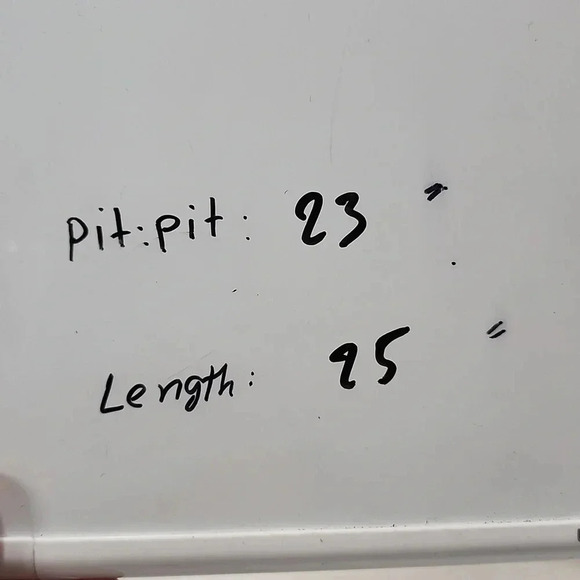 pit:pit: 23 "
Length: 25 "